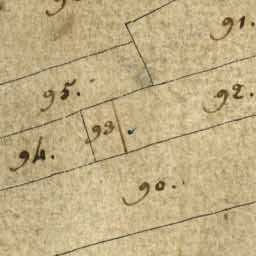 91.
95.
92.
93
94.
90.